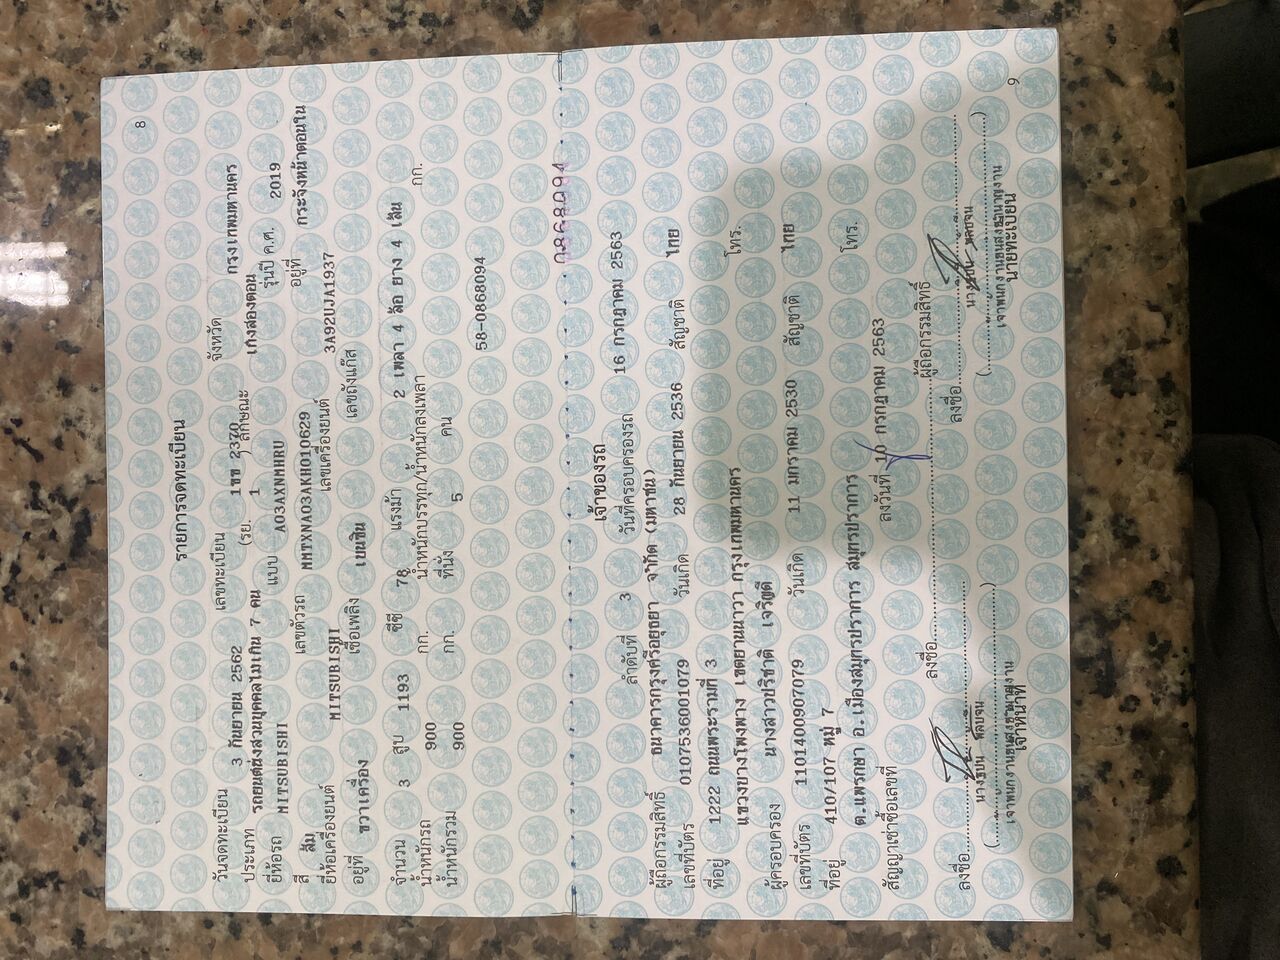 8
รายการจดทะเบียน
วันจดทะเบียน 3 กันยายน 2562 เลขทะเบียน 1ขข 2370 จังหวัด กรุงเทพมหานคร
ประเภท รถยนต์นั่งส่วนบุคคลไม่เกิน 7 คน (รย. 1 ลักษณะ เก๋งสองตอน
ยี่ห้อรถ MITSUBISHI แบบ A03AXNHHRU รุ่นปี ค.ศ. 2019
สี ส้ม เลขตัวรถ MMTXNA03AKH010629 อยู่ที่ กระจังหน้าตอนใน
ยี่ห้อเครื่องยนต์ MITSUBISHI เลขเครื่องยนต์ 3A92UJA1937
อยู่ที่ ขวาเครื่อง เชื้อเพลิง เบนซิน เลขถังแก๊ส
จำนวน 3 สูบ 1193 ซีซี 78 แรงม้า 2 เพลา 4 ล้อ ยาง 4 เส้น
น้ำหนักรถ 900 กก. น้ำหนักบรรทุก/น้ำหนักลงเพลา กก.
น้ำหนักรวม 900 กก. ที่นั่ง 5 คน
58-0868094
0868094
เจ้าของรถ
ลำดับที่ 3 วันที่ครอบครองรถ 16 กรกฎาคม 2563
ผู้ถือกรรมสิทธิ์ ธนาคารกรุงศรีอยุธยา จำกัด (มหาชน)
เลขที่บัตร 0107536001079 วันเกิด 28 กันยายน 2536 สัญชาติ ไทย
ที่อยู่ 1222 ถนนพระรามที่ 3
แขวงบางโพงพาง เขตยานนาวา กรุงเทพมหานคร โทร.
ผู้ครอบครอง นางสาวปริชาติ
เลขที่บัตร 1101400907079 วันเกิด 11 มกราคม 2530 สัญชาติ ไทย
ที่อยู่ 410/107 หมู่ 7
ต.แพรกษา อ.เมืองสมุทรปราการ สมุทรปราการ โทร.
สัญญาเช่าซื้อเลขที่ ลงวันที่ 10 กรกฎาคม 2563
ลงชื่อ ผู้ถือกรรมสิทธิ์
ลงชื่อ ลงชื่อ
เจ้าหน้าที่ นายทะเบียน
9